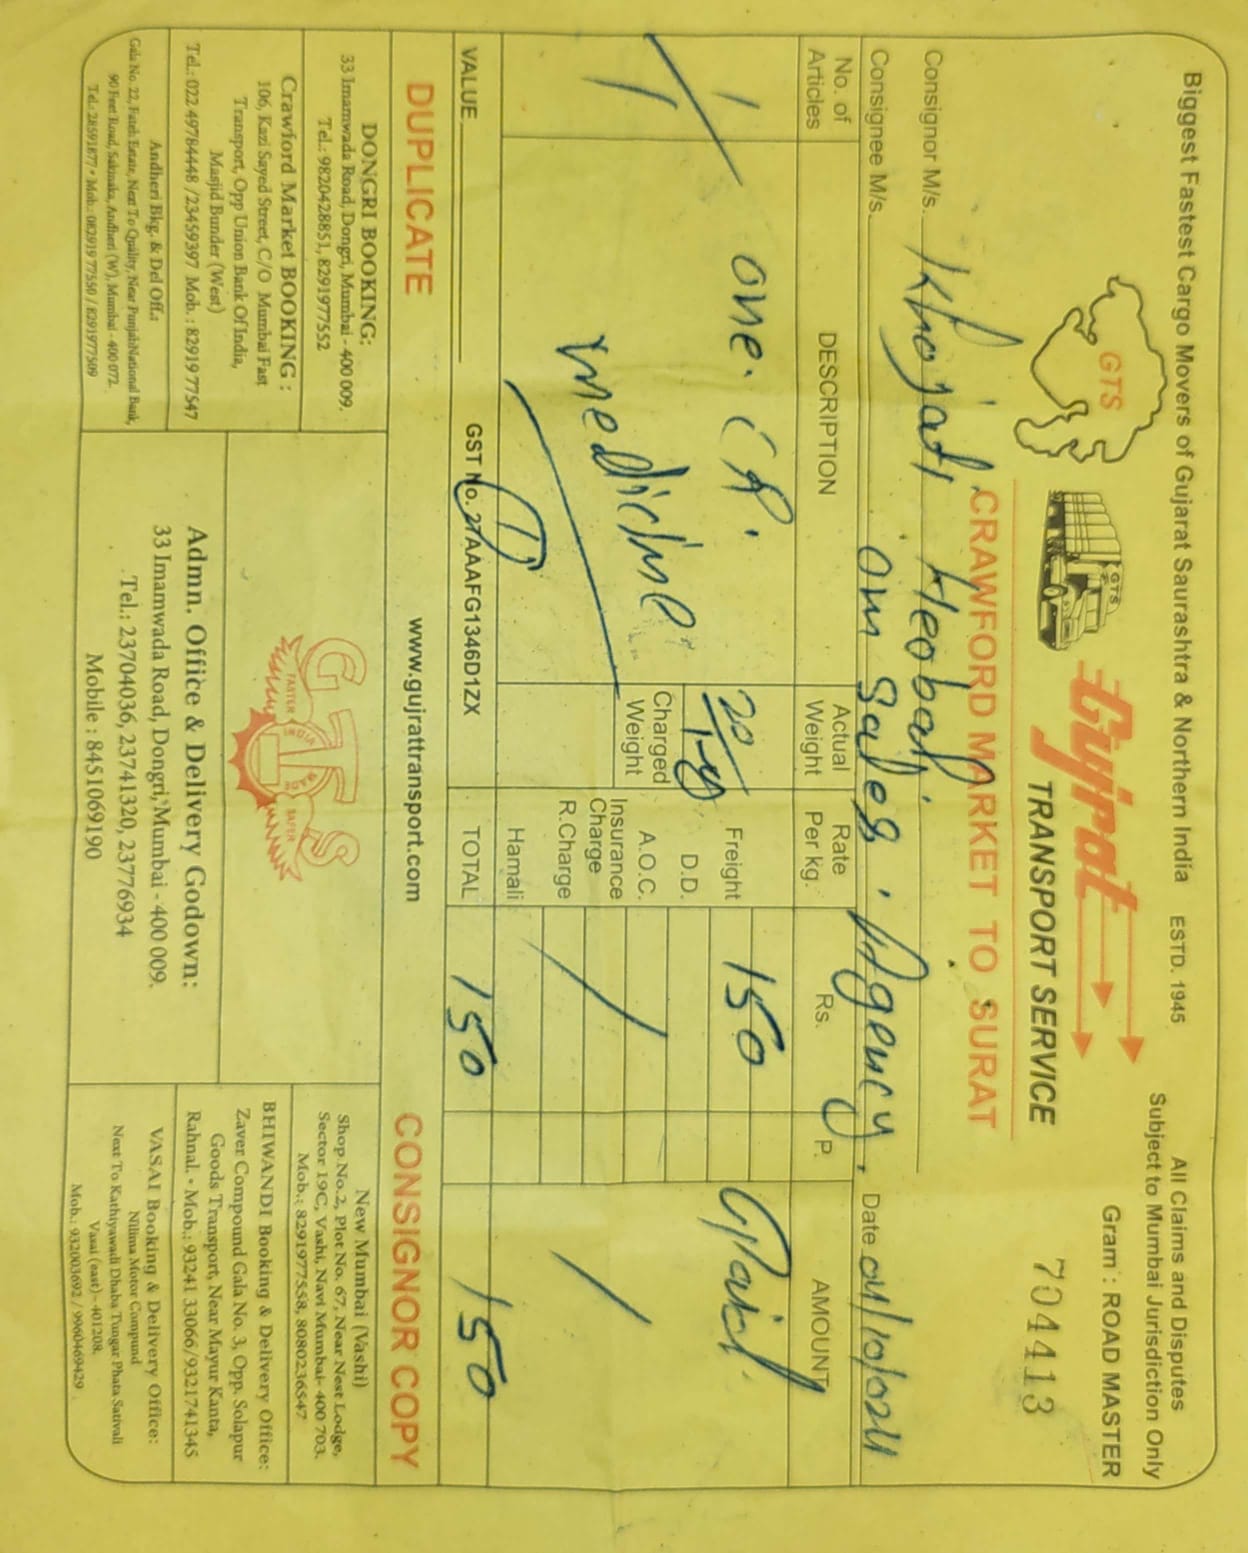 Biggest Fastest Cargo Movers of Gujarat Saurashtra & Northern India ESTD. 1945
All Claims and Disputes
Subject to Mumbai Jurisdiction Only
Gram : ROAD MASTER
GTS
GTS
Gujrat
TRANSPORT SERVICE
704413
CRAWFORD MARKET TO SURAT
Consignor M/s. Khojati
Consignee M/s. Om Sales Agency. Date 04/10/024
No. of Articles DESCRIPTION Actual Weight Rate Per kg. Rs. P. AMOUNT
1 one. 20 kg Freight 150 Paid
D.D.
medicine Charged Weight A.O.C.
Insurance Charge
R.Charge
Hamali
VALUE GST No. 27AAAFG1346D1ZX TOTAL 150 150
DUPLICATE www.gujrattransport.com CONSIGNOR COPY
DONGRI BOOKING:
33 Imamwada Road, Dongri, Mumbai - 400 009.
Tel.: 9820428851, 8291977552
Crawford Market BOOKING :
106, Kazi Sayed Street, C/O Mumbai Fast
Transport, Opp Union Bank Of India,
Masjid Bunder (West)
Tel.: 022 49784448 /23459397 Mob. : 82919 77547
Andheri Bkg. & Del Off.:
Gala No. 22, Fateh Estate, Next To Quality, Near Punjab National Bank,
90 Feet Road, Sakinaka, Andheri (W), Mumbai - 400 072.
Tel.: 28591877 • Mob.: 082919 77550 / 8291977509
GTS
FASTER INDIA SAFER
Admn. Office & Delivery Godown:
33 Imamwada Road, Dongri, Mumbai - 400 009.
Tel.: 23704036, 23741320, 23776934
Mobile : 8451069190
New Mumbai (Vashi)
Shop No.2, Plot No. 67, Near Nest Lodge,
Sector 19C, Vashi, Navi Mumbai- 400 703.
Mob.: 8291977558, 8080236547
BHIWANDI Booking & Delivery Office:
Zaver Compound Gala No. 3, Opp. Solapur
Goods Transport, Near Mayur Kanta,
Rahnal. - Mob.: 93241 33066/9321741345
VASAI Booking & Delivery Office:
Nilima Motor Compund
Next To Kathiyawadi Dhaba Tungar Phata Sativali
Vasai (east)- 401208.
Mob.: 932003692 / 9960469429